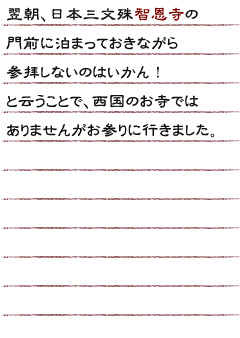 翌朝、日本三文殊智恩寺の
門前に泊まっておきながら
参拝しないのはいかん！
と云うことで、西国のお寺では
ありませんがお参りに行きました。